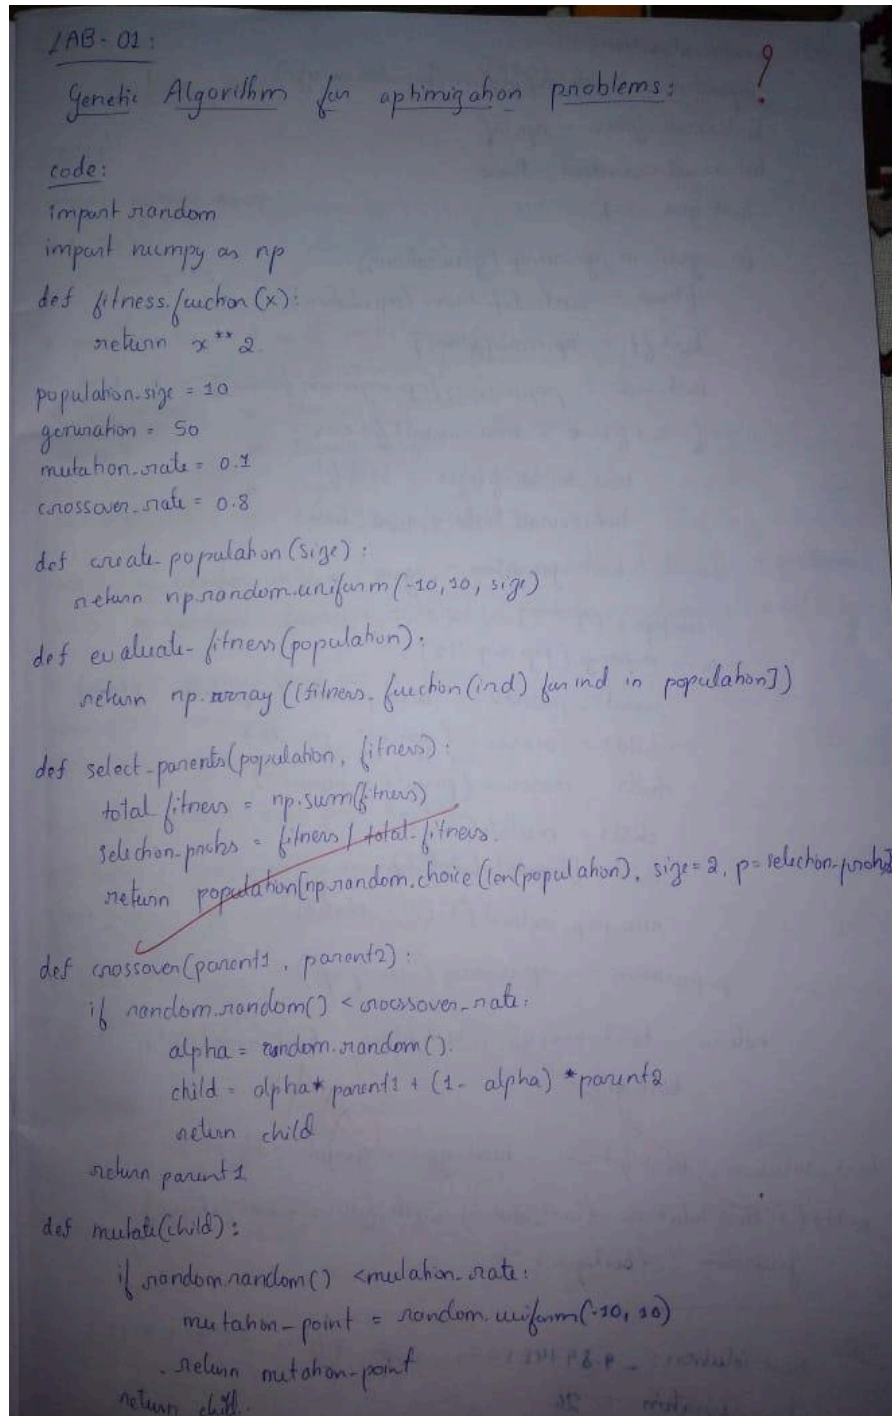 LAB-01:
Genetic Algorithm for optimization problems:
?
code:
import random
import numpy as np
def fitness_fuction(x):
return x**2
population_size = 10
generation = 50
mutation_rate = 0.1
crossover_rate = 0.8
def create_population(size):
return np.random.uniform(-10,10, size)
def evaluate_fitness(population):
return np.array([fitness_fuction(ind) for ind in population])
def select_parents(population, fitness):
total_fitness = np.sum(fitness)
selection_probs = fitness / total_fitness.
return population[np.random.choice(len(population), size=2, p=selection_probs)]
def crossover(parent1, parent2):
if random.random() < crossover_rate:
alpha = random.random().
child = alpha* parent1 + (1- alpha) *parent2
return child
return parent1
def mutate(child):
if random.random() <mutation_rate:
mutation_point = random.uniform(-10, 10)
return mutation_point
return child.